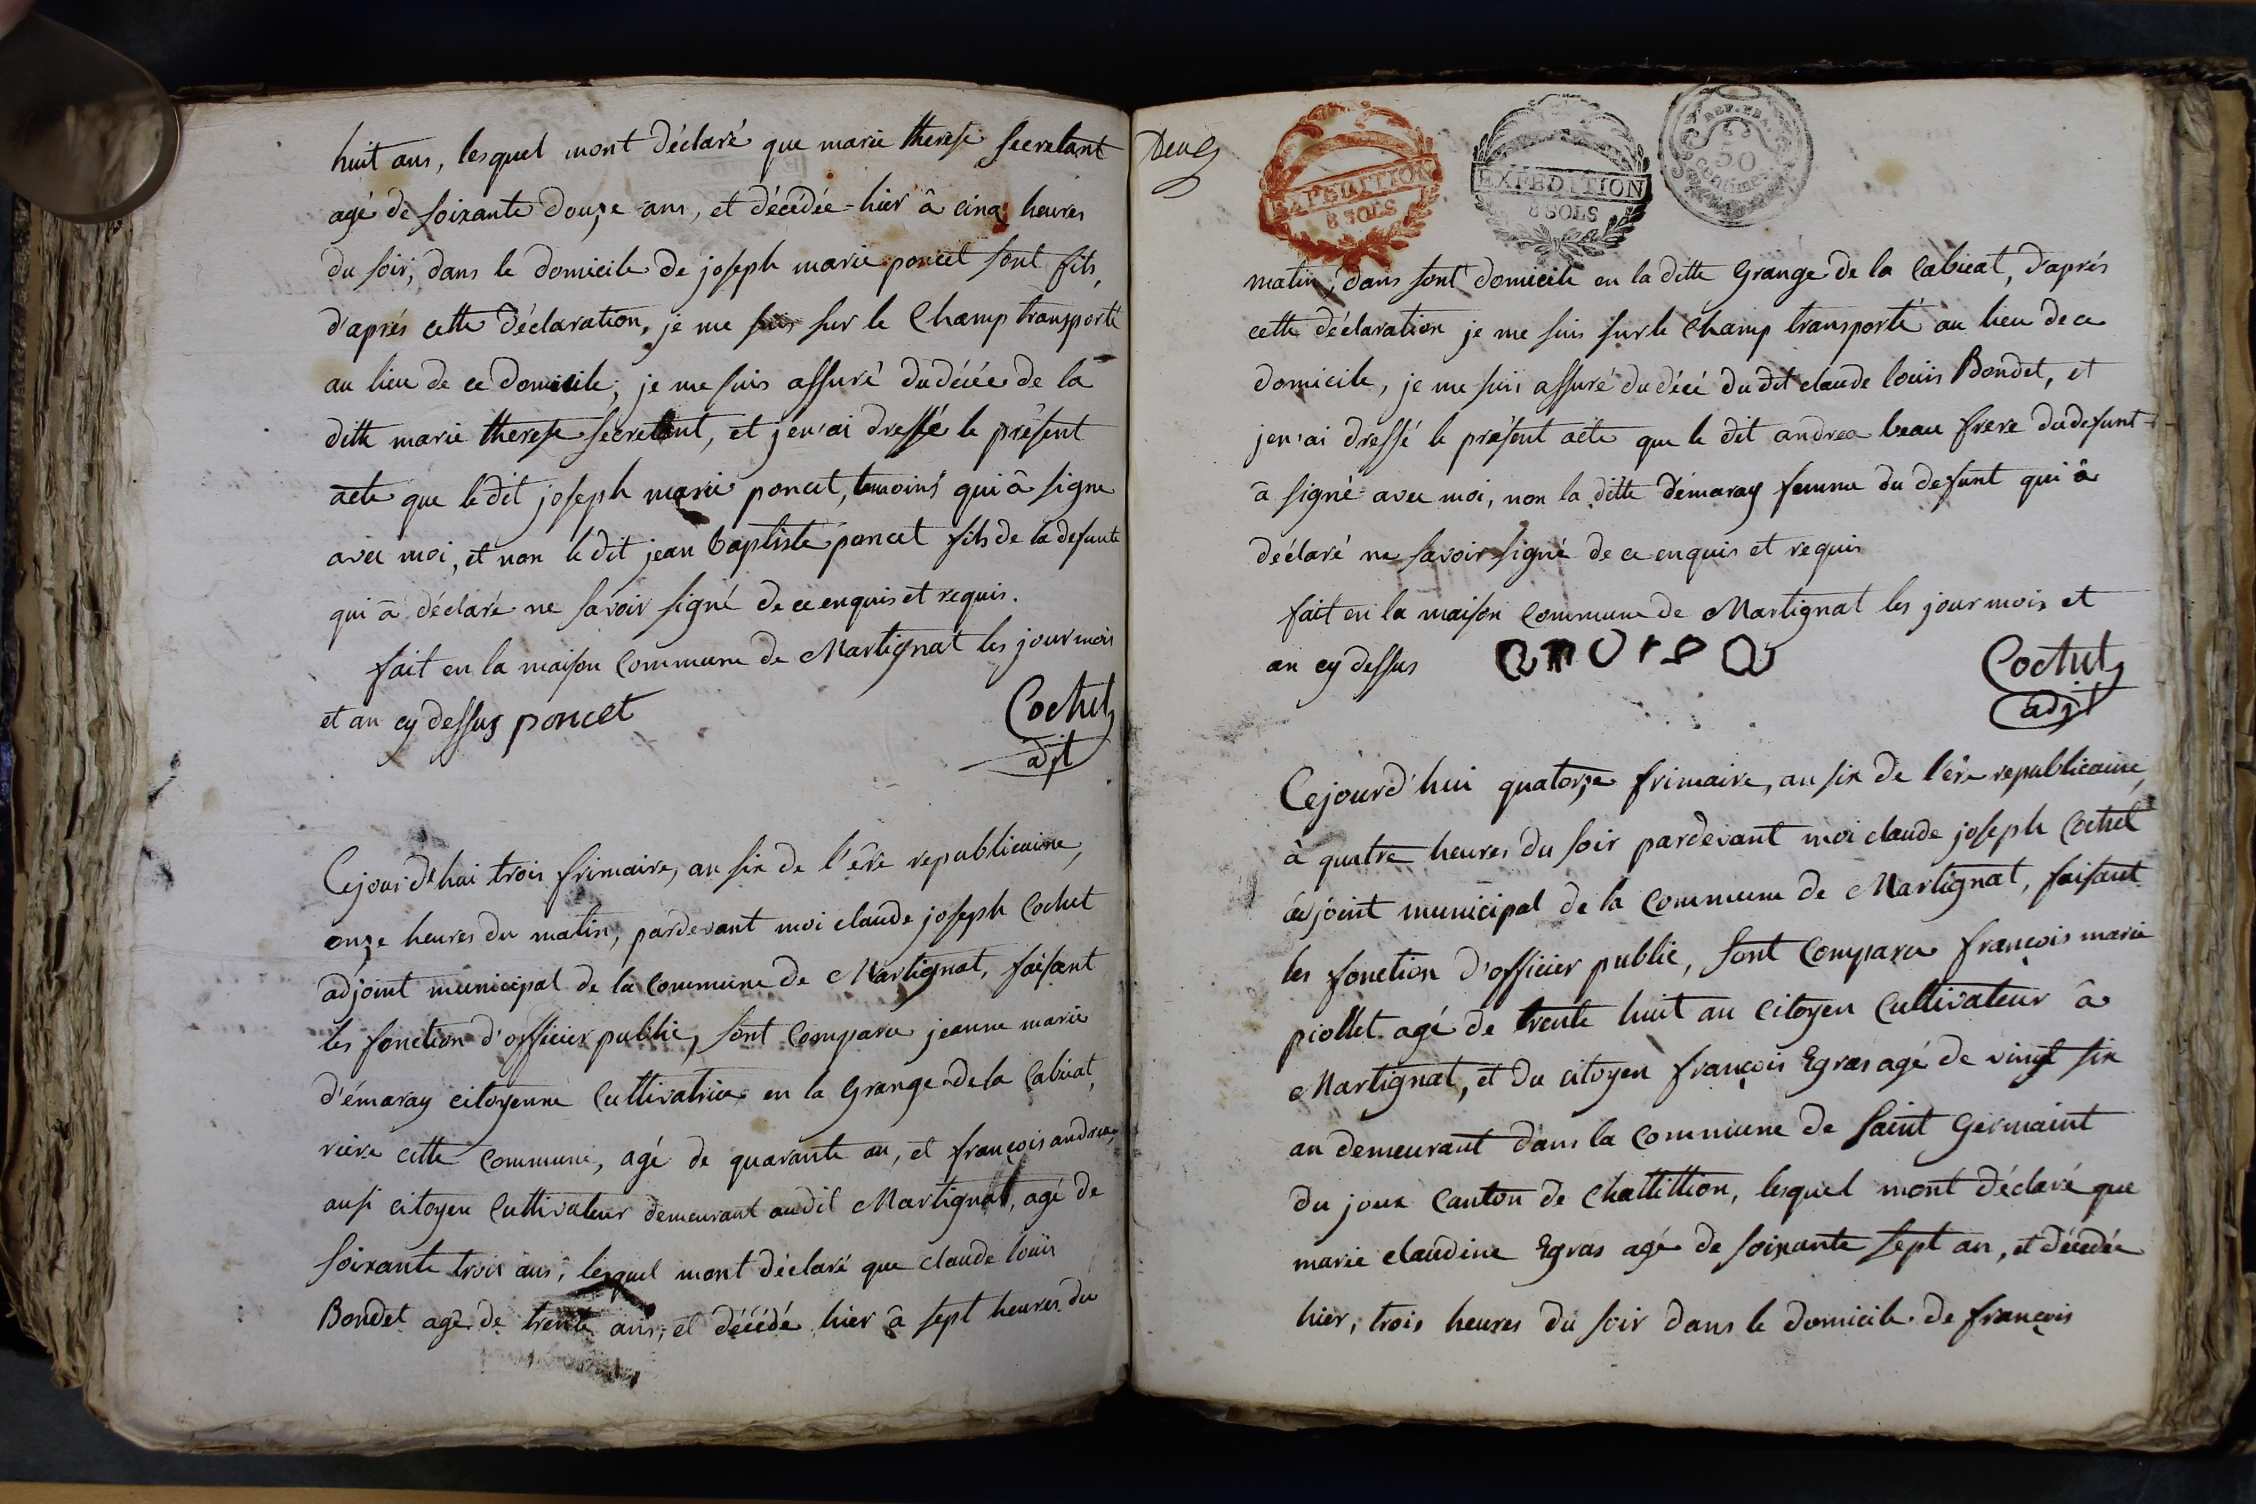 huit ans, lesquel mont déclaré que marie therese secretant
agé de soixante douze ans, et décédée hier â cinq heures
du soir, dans le domicile de joseph marie poncet sont fils,
d'aprés cette déclaration, je me suis sur le Champ transporté
au lieu de ce domicile, je me suis assuré du décée de la
ditte marie therese secretent, et j'en'ai dressé le présent
acte que le dit joseph marie poncet, temoins qui â signe
avec moi, et non le dit jean baptiste poncet fils de la defunte
qui â déclaré ne savoir signé de ce enquis et requis.
fait en la maison Commune de Martignat les jour mois
et an cy dessus poncet
Cochet
adjt
Cejourd'hui trois frimaire, an six de l'ére republicaine,
onze heures du matin, pardevant moi claude joseph Cochet
adjoint municipal de la Commune de Martignat, faisant
les fonction d'officier public, sont Comparu jeanne marie
d'émaray citoyenne Cultivatrice en la Grange de la Cabieat,
riére cette Commune, agé de quarante an, et françois andrea,
ausi citoyen Cultivateur demeurant audit Martignat, agé de
soixante trois ans, lesquel mont déclaré que claude louis
Bondet agé de trente ans, et décédé hier â sept heures du
Deux
EXPEDITION
8 SOLS
EXPEDITION
8 SOLS
REP. FRA.
50
Centimes
matin, dans sont domicile en la ditte Grange de la Cabieat, d'aprés
cette déclaration je me suis sur le Champ transporté au lieu de ce
domicile, je me suis assuré du décé du dit claude louis Bondet, et
jen'ai dressé le présent acte que le dit andrea beau frere du defunt
â signé avec moi, non la ditte démaray femme du defunt qui â
déclaré ne savoir signé de ce enquis et requis
fait en la maison Commune de Martignat les jour mois et
an cy dessus andrea
Cochet
adjt
Cejourd'hui quatorze frimaire, an six de l'ére republicaine,
à quatre heures du soir pardevant moi claude joseph Cochet
adjoint municipal de la Commune de Martignat, faisant
les fonction d'officier public, sont Comparu françois marie
piollet agé de trente huit an citoyen Cultivateur â
Martignat, et du citoyen françois Egras agé de vingt six
an demeurant dans la Commune de saint Germaint
du joux Canton de Chattittion, lesquel mont déclaré que
marie claudine Egras agé de soixante sept an, et décedée
hier, trois heures du soir dans le domicile de françois